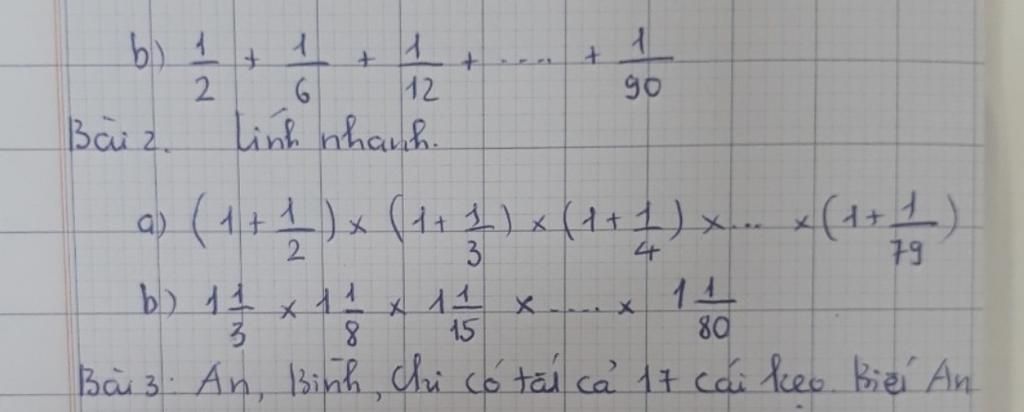 b) 1/2 + 1/6 + 1/12 + .... + 1/90
Bài 2. Tính nhanh.
a) (1 + 1/2) × (1 + 1/3) × (1 + 1/4) × ... × (1 + 1/79)
b) 1 1/3 × 1 1/8 × 1 1/15 × ..... × 1 1/80
Bài 3: An, Bình, Chi có tất cả 17 cái kẹo. Biết An